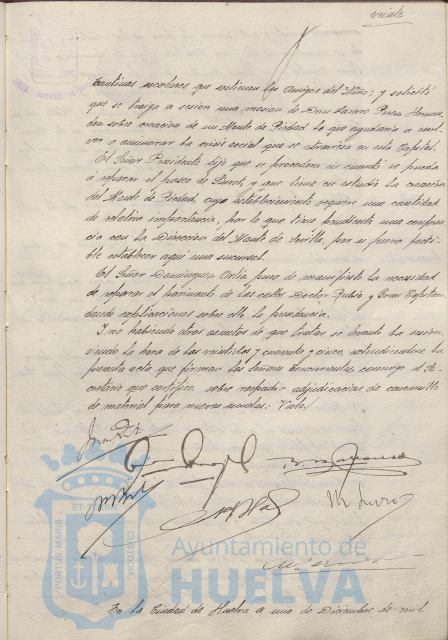 veinte
Cantinas escolares que sostienen los Amigos del Niño; y solicitó
que se traiga a sesión una moción de Don Lázaro Pérez
dez sobre creación de un Monte de Piedad lo que ayudaría a
ver o aminorar la crisis social que se atraviesa en esta Capital.
El Señor Presidente dijo que se procederá en cuanto se pueda
a reparar el paseo de Buenos, y que tiene en estudio la creación
del Monte de Piedad, cuyo establecimiento requiere una cantidad
de relativa importancia, por lo que tiene pendiente una
cia con la Dirección del Monte de Sevilla, por si fuera facti-
ble establecer aquí una sucursal.
El Señor Domínguez Ortiz puso de manifiesto la necesidad
de reparar el pavimento de las calles Doctor Rubio y Gran Capitán
dando explicaciones sobre ello la presidencia.
Y no habiendo otros asuntos de que tratar se levantó la sesión,
siendo la hora de las veintidós y cuarenta y cinco, extendiéndose la
presente acta que firman los Señores Concurrentes, conmigo el Se-
cretario que certifico. sobre raspado= adjudicación de
de material para nuevas escuelas.= Vale.
PORTUS MARIS ET TERRAE CUSTODIA
Ayuntamiento de
HUELVA
En la Ciudad de Huelva a uno de Diciembre de mil